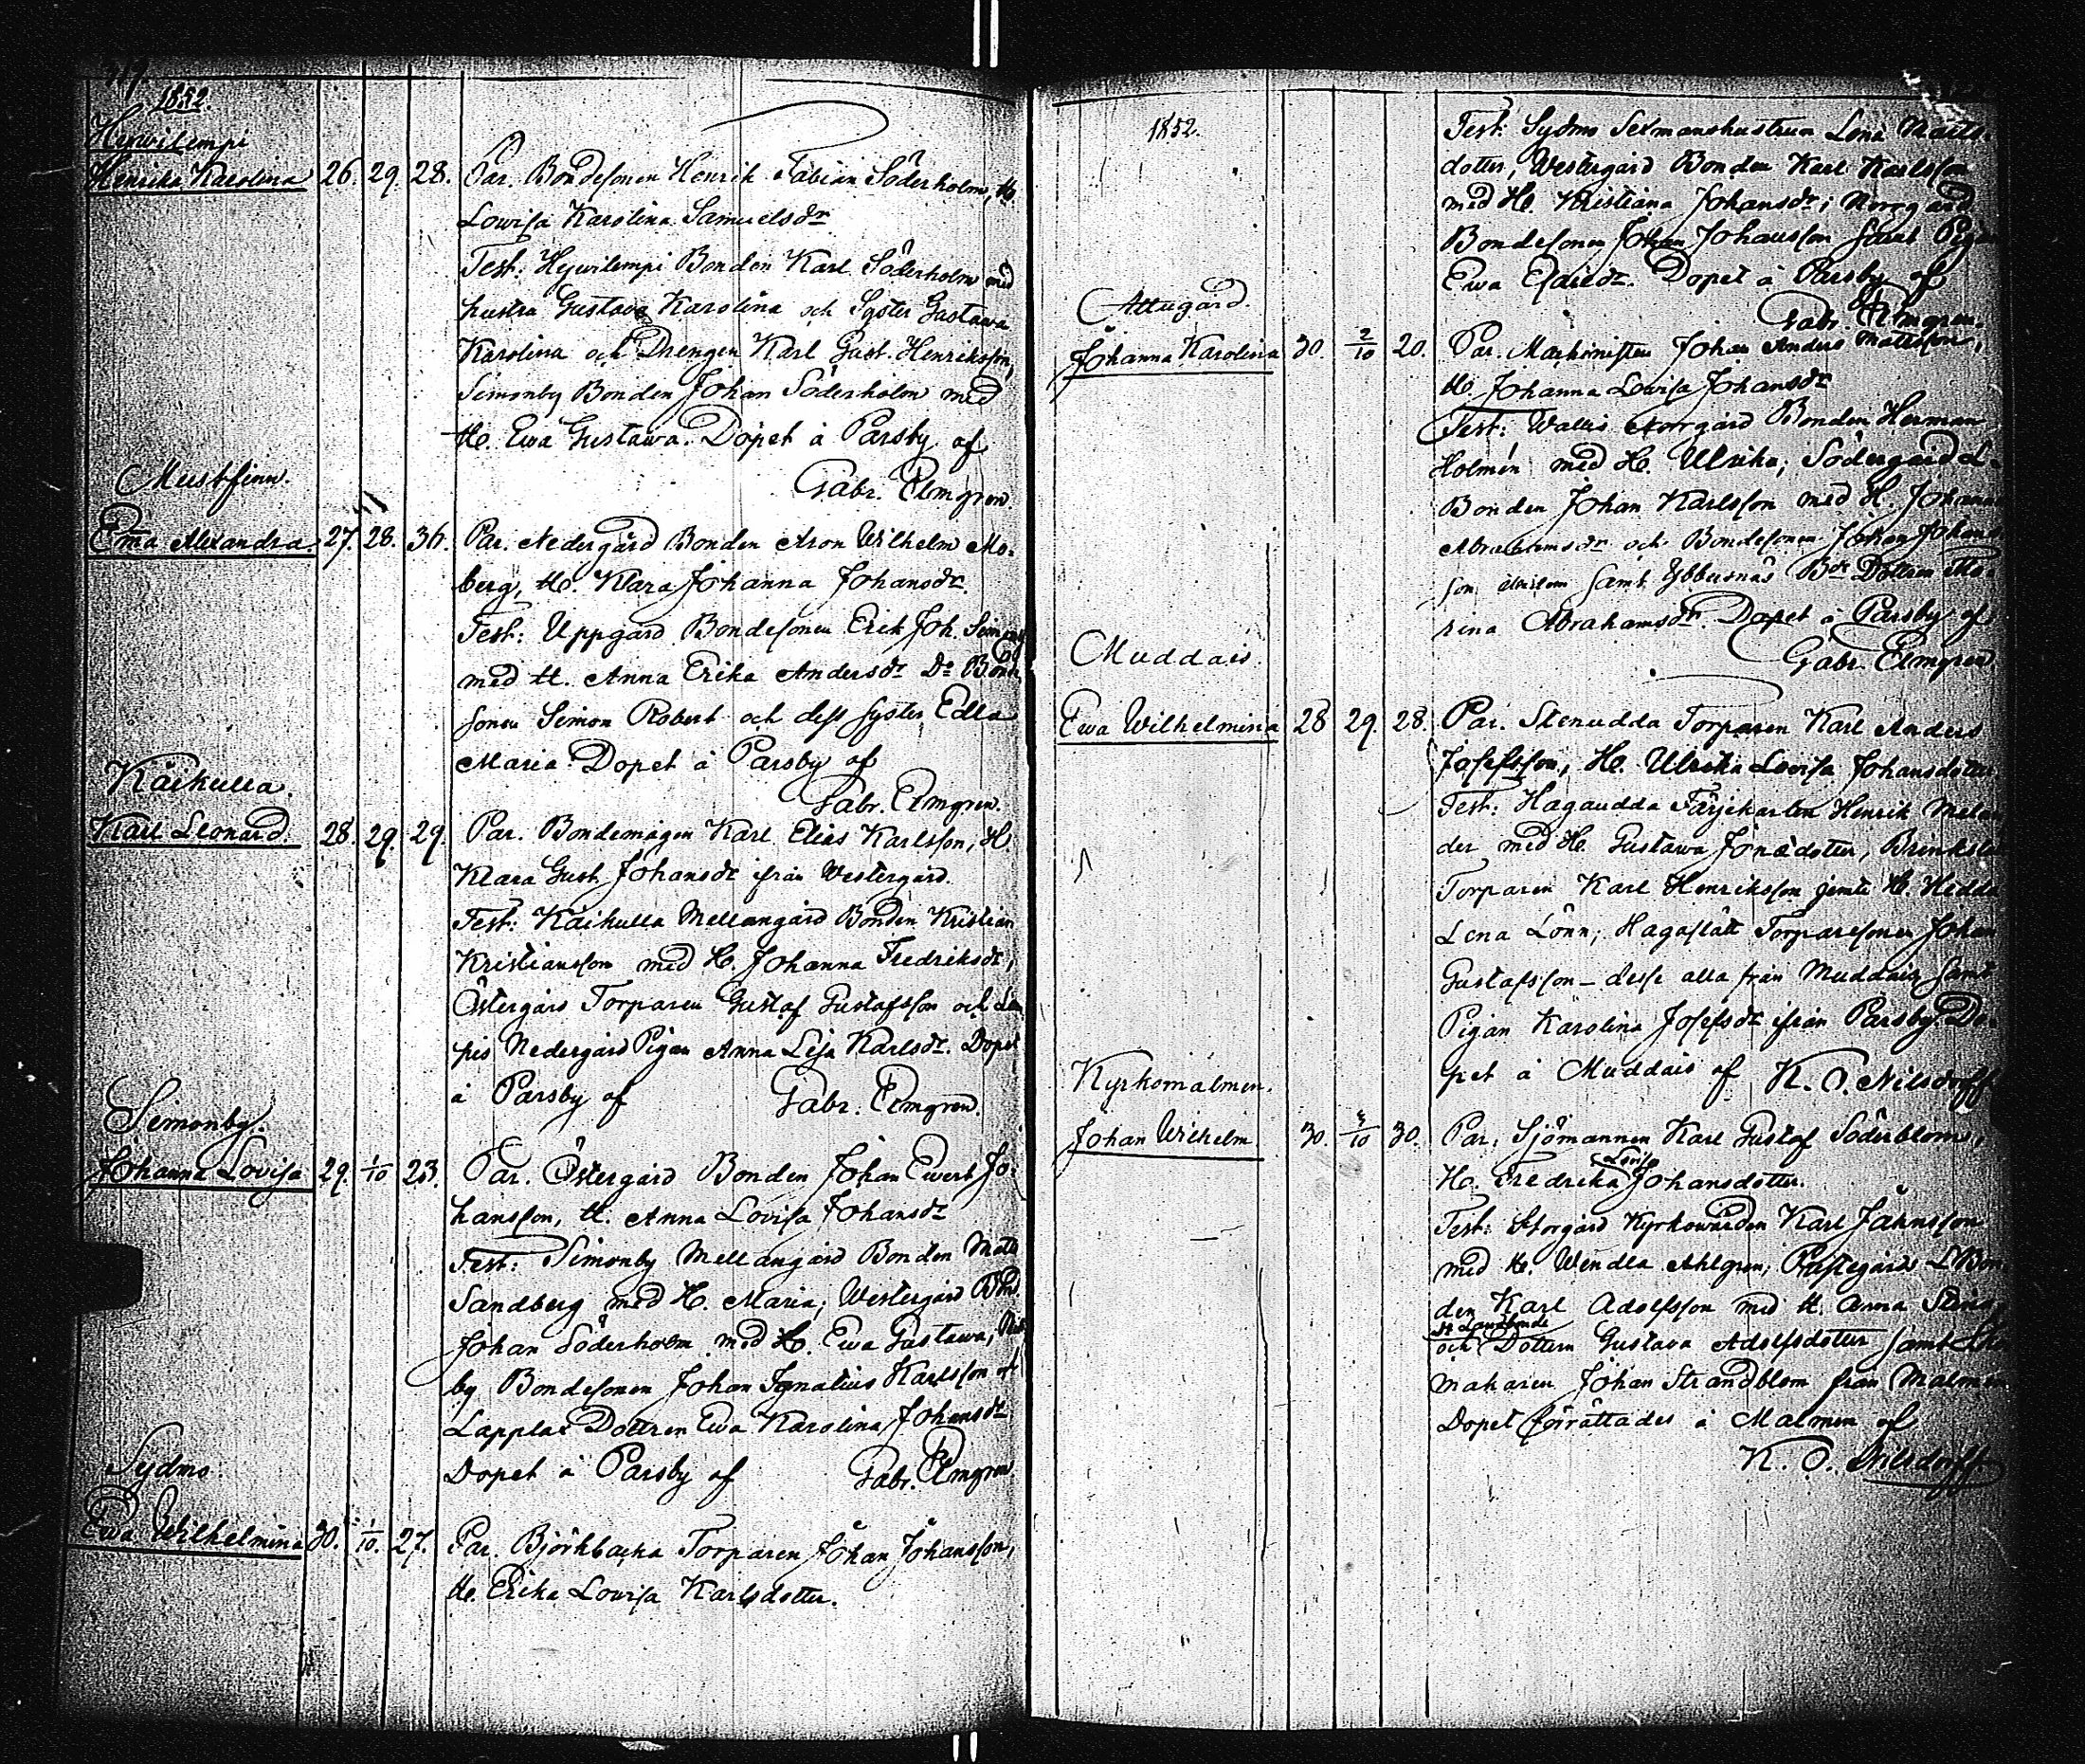 319.
1852.
Hywilempi
Henrika Karolina 26. 29. 28. Par. Bondesonen Henrik Fabian Söderholm, H.
Lowisa Karolina Samuelsdr
Test: Hywilempi Bonden Karl Söderholm med
hustra Gustava Karolina och Syster Gustawa
Karolina och Drengen Karl Gust. Henriksson,
Simonby Bonden Johan Söderholm med
H. Ewa Gustawa. Dopet å Parsby af
Gabr. Elmgren.
Mustfinn.
Ema Alexandra. 27. 28. 36. Par. Nedergård Bonden Aron Wilhelm Mo-
berg, H. Klara Johanna Johansdr.
Test: Uppgård Bondesonen Erik Joh.
med H. Anna Erika Andersdr Do
sonen Simon Robert och dess syster Edla
Maria. Dopet å Parsby af
Gabr. Elmgren.
Kaikulla.
Karl Leonard. 28. 29. 29. Par. Bondemågen Karl Elias Karlsson, H.
Klara Gust. Johansdr ifrån Westergård.
Test: Kaikulla Mellangård Bonden Kristian
Kristiansson med H. Johanna Fredriksdr,
Östergård Torparen Gustaf Gustafsson och
pis Nedergård Pigan Anna Lisa Karlsdr. Dopet
å Parsby af Gabr. Elmgren.
Simonby.
Johanna Lovisa 29. 1/10 23. Par. Östergård Bonden Johan Ewert Jo-
hansson, H. Anna Lovisa Johansdr
Test: Simonby Mellangård Bonden Matts
Sandberg med H. Maria; Westergård Bond.
Johan Söderholm med H. Ewa Gustawa,
by Bondesonen Johan Ignatius Karlsson och
Lapplax Dottren Ewa Karolina Johansdr
Dopet å Parsby af Gabr. Elmgren.
Sydmo.
Ewa Wilhelmina 30. 1/10. 27. Par. Björkbacka Torparen Johan Johansson,
H. Erika Lowisa Karlsdotter.
1852.
Test: Sydmo Sexmanshustrun Lena Matts-
dotter, Westergård Bonden Karl Karlsson
med H. Kristiana Johansdr; Norrgård
Bondesonen Johan Johansson samt Pigan
Ewa Dopet å Parsby af
Gabr. Elmgren.
Attugård.
Johanna Karolina 30. 2/10 20. Par. Maskinisten Johan Anders Mattsson,
H. Johanna Lovisa Johansdr
Test: Wallis Norrgård Bonden Herman
Holmén med H. Ulrika; Södergård L.
Bonden Johan Karlsson med H. Johanna
Abrahamsdr och Bondesonen Johan Johans-
son samt Ybbersnäs Bde Dottren
rina Abrahamsdr. Dopet å Parsby af
Gabr. Elmgren
Muddais.
Ewa Wilhelmina 28 29. 28. Par. Stenudda Torparen Karl Anders
Josefsson, H. Ulrika Lovisa Johansdotter
Test: Hagaudda Färjekarlen Henrik Melan-
der med H. Gustawa Jönsdotter,
Torparen Karl Henriksson jemte H. Hedda
Lena Lönn; Hagaslätt Torparesonen Johan
Gustafsson – desse alla från Muddais samt
Pigan Karolina Josefsdr ifrån Parsby. Do-
pet å Muddais af K. O. Nilsdorff
Kyrkomalmen.
Johan Wilhelm. 30. 3/10 30. Par. Sjömannen Karl Gustaf Söderblom,
Lovisa
H. Fredrika Johansdotter.
Test: Storgård Kyrkowärden Karl Jahnsson
med H. Wendla Ahlgren; Prästegårds L. Bon-
den Karl Adolfsson med H. Anna Stina,
och Dottren Gustava Adolfsdotter samt
makaren Johan Strandblom från Malmen
Dopet förrättades å Malmen af
K. O. Nilsdorff